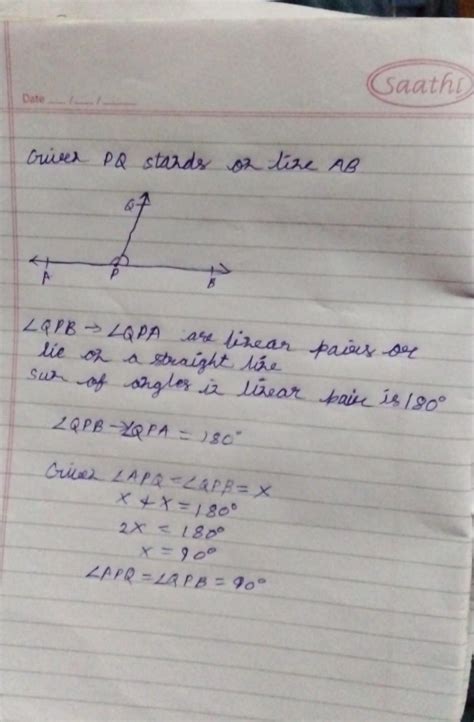 Saathi
Date __/__/____
Given PQ stands on line AB
Q
A P B
∠QPB → ∠QPA are linear pairs or
lie on a straight line
sum of angles in linear pair is 180°
∠QPB → ∠QPA = 180°
Given ∠APQ = ∠QPB = x
x + x = 180°
2x = 180°
x = 90°
∠APQ = ∠QPB = 90°